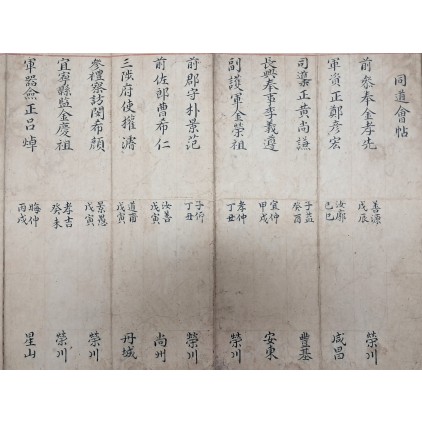 同道會帖
前參奉金孝先 善源 戊辰 榮川
軍資正鄭彦宏 汝廓 己巳 咸昌
司正黃尚謙 子益 癸酉 豊基
長興奉事李義遵 宜仲 甲戌 安東
副護軍金榮祖 孝仲 丁丑 榮川
前郡守朴景范 丁丑 榮川
前佐郎曹希仁 汝善 戊寅 尚州
三陟府使權濤 道甫 戊寅 丹城
參禮察訪閔希顔 景愚 戊寅 榮川
宜寧縣監金慶祖 孝吉 癸未 榮川
軍器僉正呂焯 晦仲 丙戌 星山